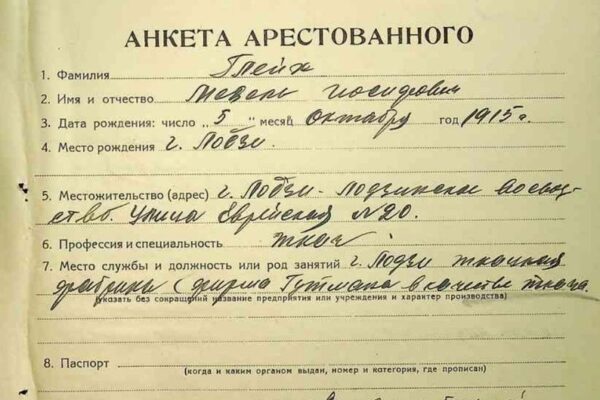 АНКЕТА АРЕСТОВАННОГО
1. Фамилия Глейх
2. Имя и отчество Иосифович
3. Дата рождения: число „5“ месяц октября год 1915 г.
4. Место рождения г. Лодзи.
5. Местожительство (адрес) г. Лодзи - Лодзинское воевод-
ство. Улица Еврейская №20.
6. Профессия и специальность ткач
7. Место службы и должность или род занятий г. Лодзи ткацкая
фабрика (фирма Гутмана в качестве ткача.
(указать без сокращений название предприятия или учреждения и характер производства)
8. Паспорт
(когда и каким органом выдан, номер и категория, где прописан)